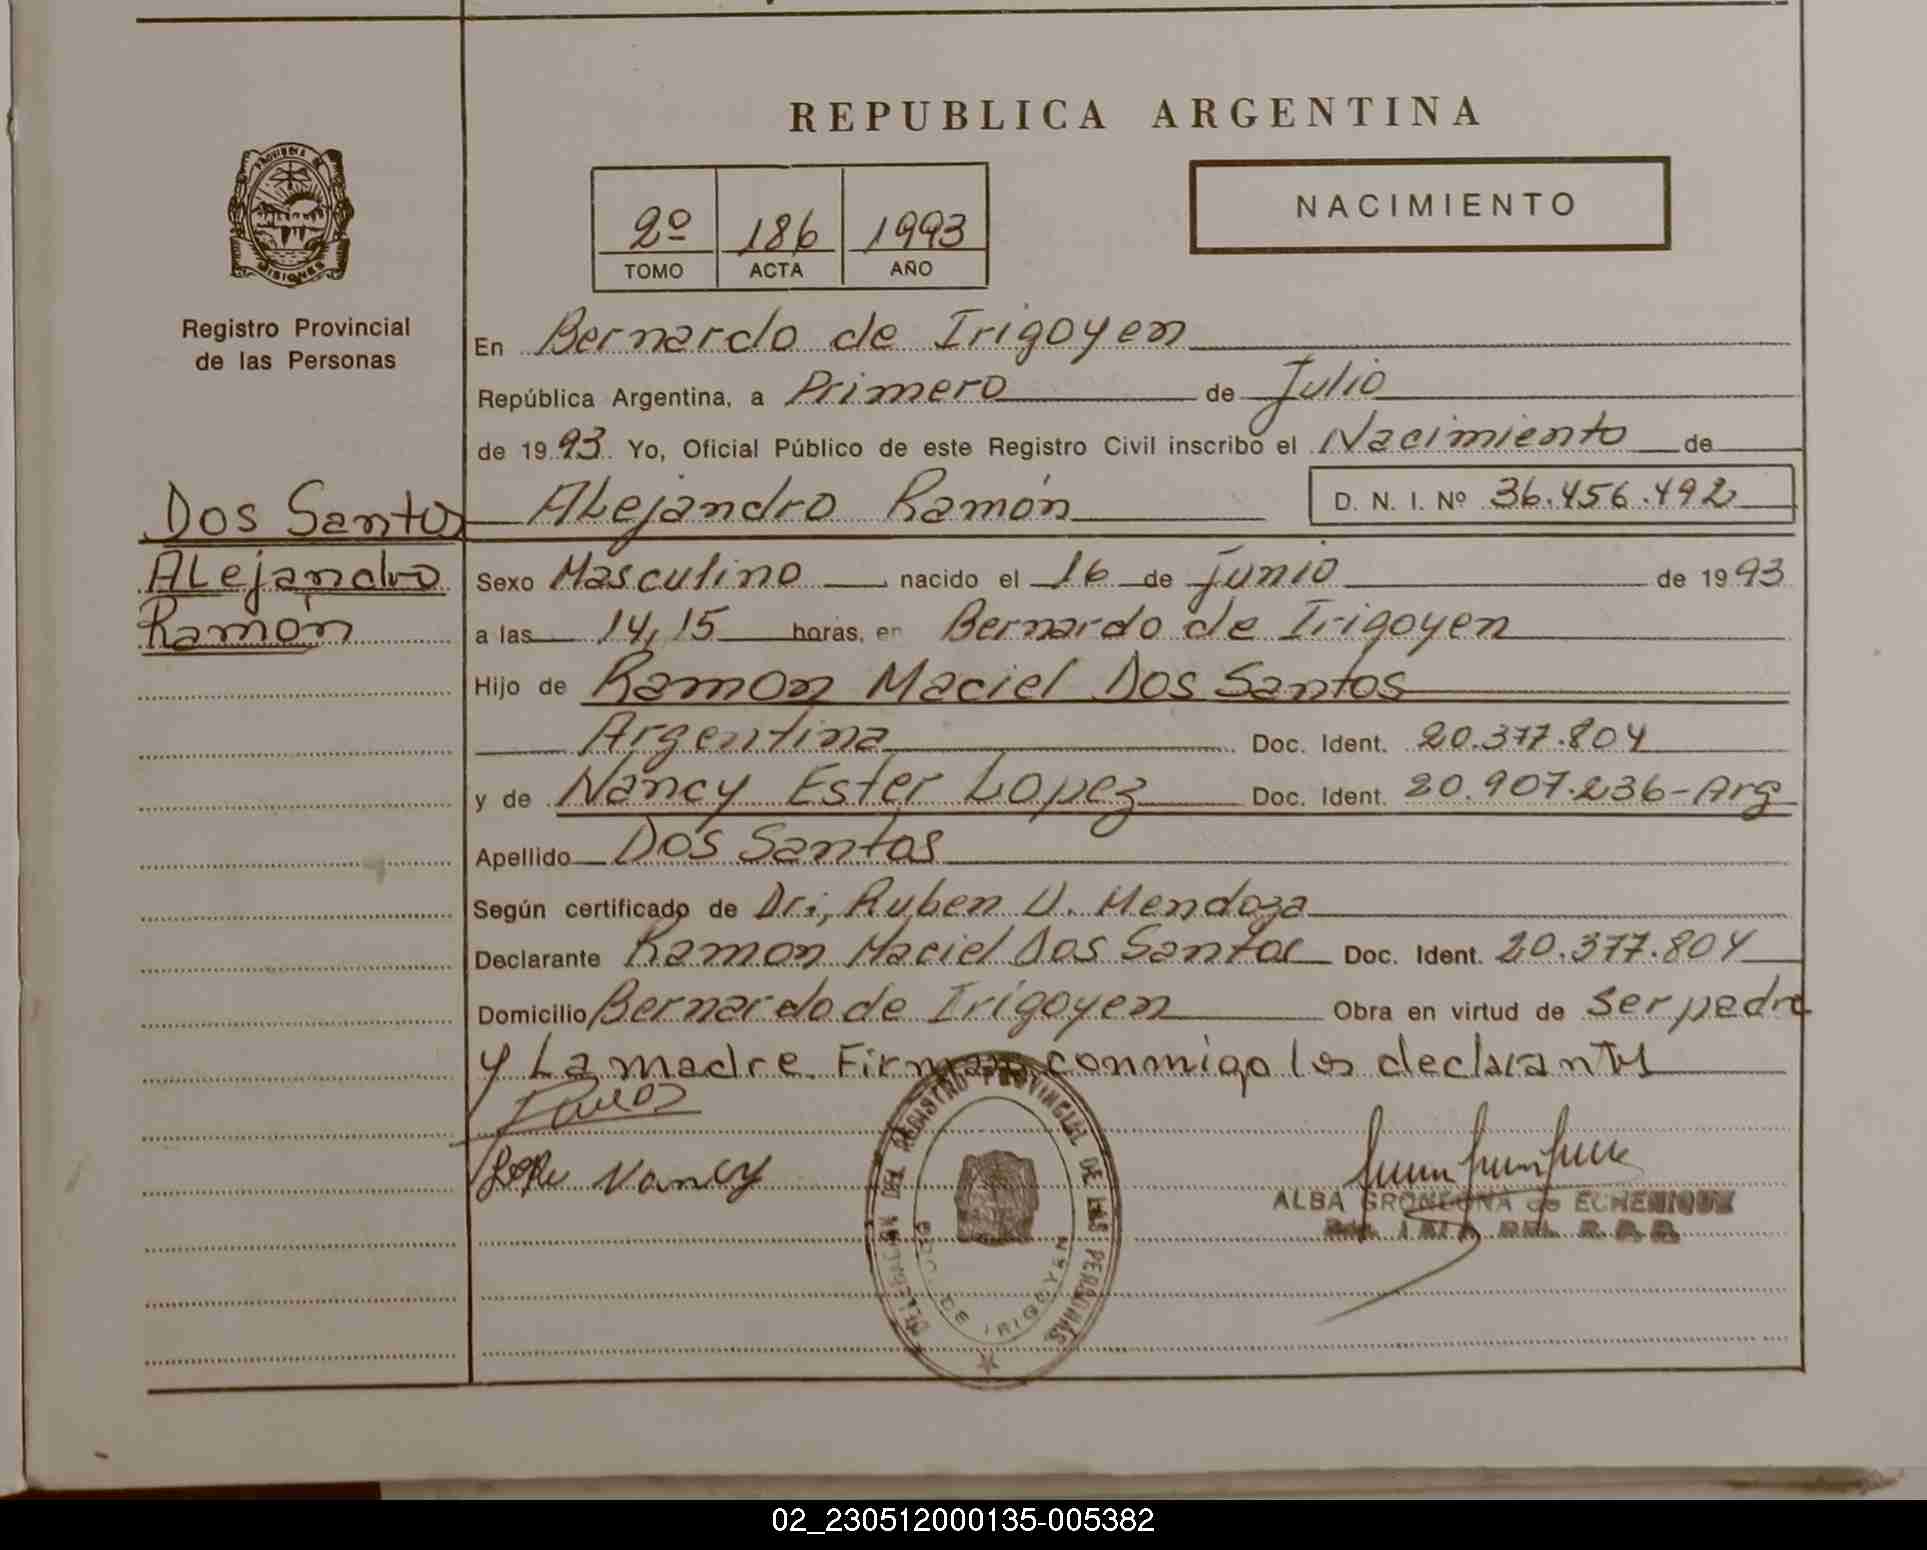 REPUBLICA ARGENTINA
NACIMIENTO
2º 186 1993
TOMO ACTA AÑO
Registro Provincial
de las Personas
En Bernardo de Irigoyen
República Argentina, a Primero de Julio
de 1993 Yo, Oficial Público de este Registro Civil inscribo el Nacimiento de
Dos Santos
Alejandro
Ramón
Alejandro Ramón D. N. I. Nº 36.456.492
Sexo Masculino nacido el 16 de junio de 1993
a las 14,15 horas, en Bernardo de Irigoyen
Hijo de Ramon Maciel Dos Santos
Argentina Doc. Ident. 20.377.804
y de Nancy Ester Lopez Doc. Ident. 20.907.236-Arg
Apellido Dos Santos
Según certificado de Dr; Ruben U. Mendoza
Declarante Ramon Maciel Dos Santos Doc. Ident. 20.377.804
Domicilio Bernardo de Irigoyen Obra en virtud de ser padre
y La madre. Firman conmigo los declarantes
Nancy
DEL REGISTRO PROVINCIAL DE LAS PERSONAS
BDO. DE IRIGOYEN
ALBA GRONDONA de ECHENIQUE
02_230512000135-005382